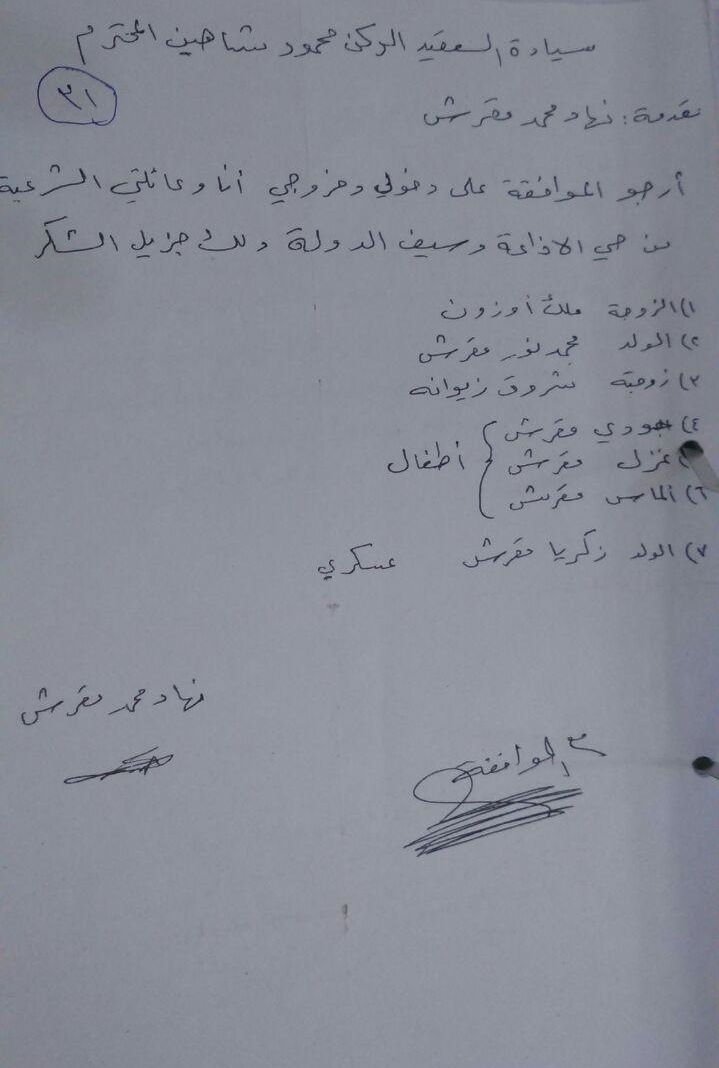 سيادة العقيد الركن محمود شاهين المحترم
٣١
مقدمة: نهاد محمد مقرش
أرجو الموافقة على دخولي وخروجي أنا وعائلتي الشرعية
من حي الاذاعة وسيف الدولة ولك جزيل الشكر
١) الزوجة ملك أوزون
٢) الولد محمد نور مقرش
٣) زوجته شروق زيوانه
٤) جودي مقرش
غزل مقرش أطفال
٦) الماس مقرش
٧) الولد زكريا مقرش عسكري
نهاد محمد مقرش
مع الموافقة